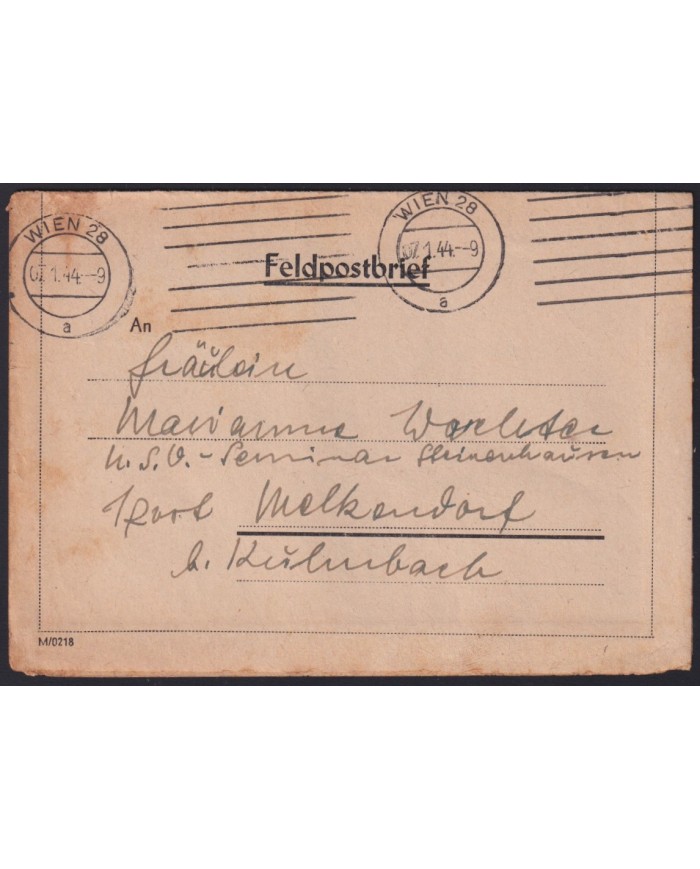 WIEN 28
07.1.44.-9
a
WIEN 28
07.1.44.-9
a
Feldpostbrief
An
Fräulein
Marianne
N.S.V.-Seminar Steinenhausen
Post Melkendorf
b. Kulmbach
M/0218